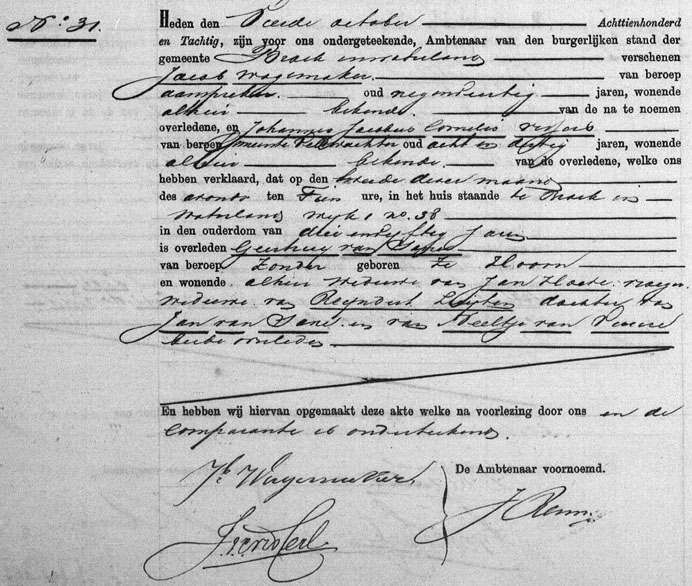 No. 31.
Heden den october Achttienhonderd
en Tachtig, zijn voor ons ondergeteekende, Ambtenaar van den burgerlijken stand der
gemeente Broek in waterland verschenen
Jacob Wagemaker van beroep
aanspreker oud negenendertig jaren, wonende
alhier bekende van de na te noemen
overledene, en Johannes Jacobus Cornelis
van beroep gemeente veldwachter oud acht en dertig jaren, wonende
alhier bekende van de overledene, welke ons
hebben verklaard, dat op den tweede dezer maand
des avonds ten Tien ure, in het huis staande te Broek in
waterland wijk 1 no. 38
in den ouderdom van drie en vyftig Jaren
is overleden Geertruy van
van beroep Zonder geboren te Hoorn
en wonende alhier weduwe van Jan vroeger
weduwe van Reyndert dochter van
Jan van en van Neeltje van
beide overleden
En hebben wij hiervan opgemaakt deze akte welke na voorlezing door ons en de
comparante is onderteekend.
Jb Wagemaker
De Ambtenaar voornoemd.